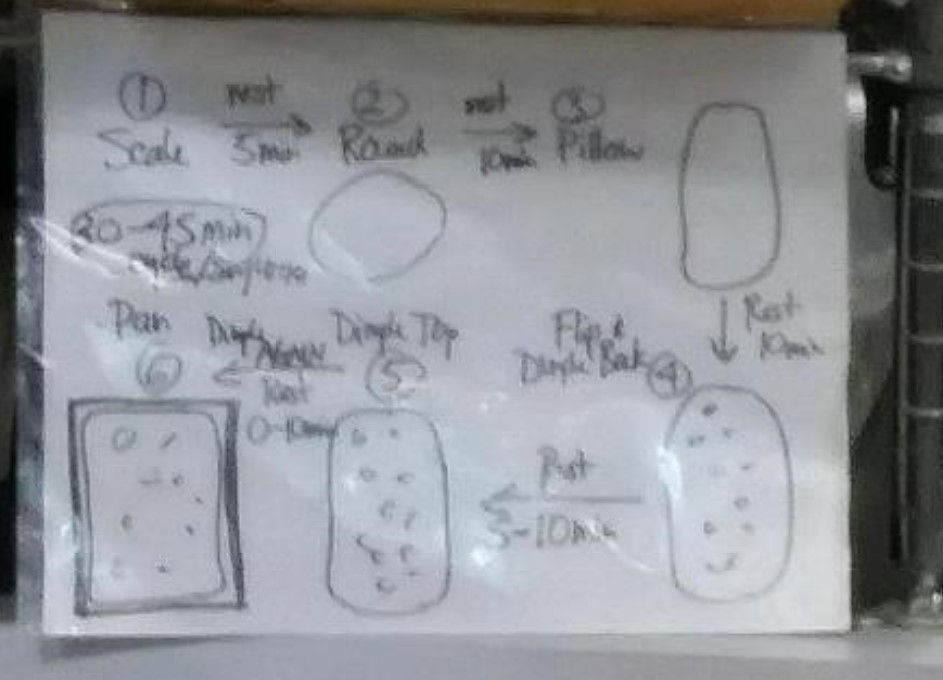 ① rest ② rest ③
Scale 5min Round 10min Pillow
30-45min
Rest
10min
Pan Dimple Top Flip &
⑥ ⑤ Dimple Back ④
Rest
0-10min
Rest
5-10min